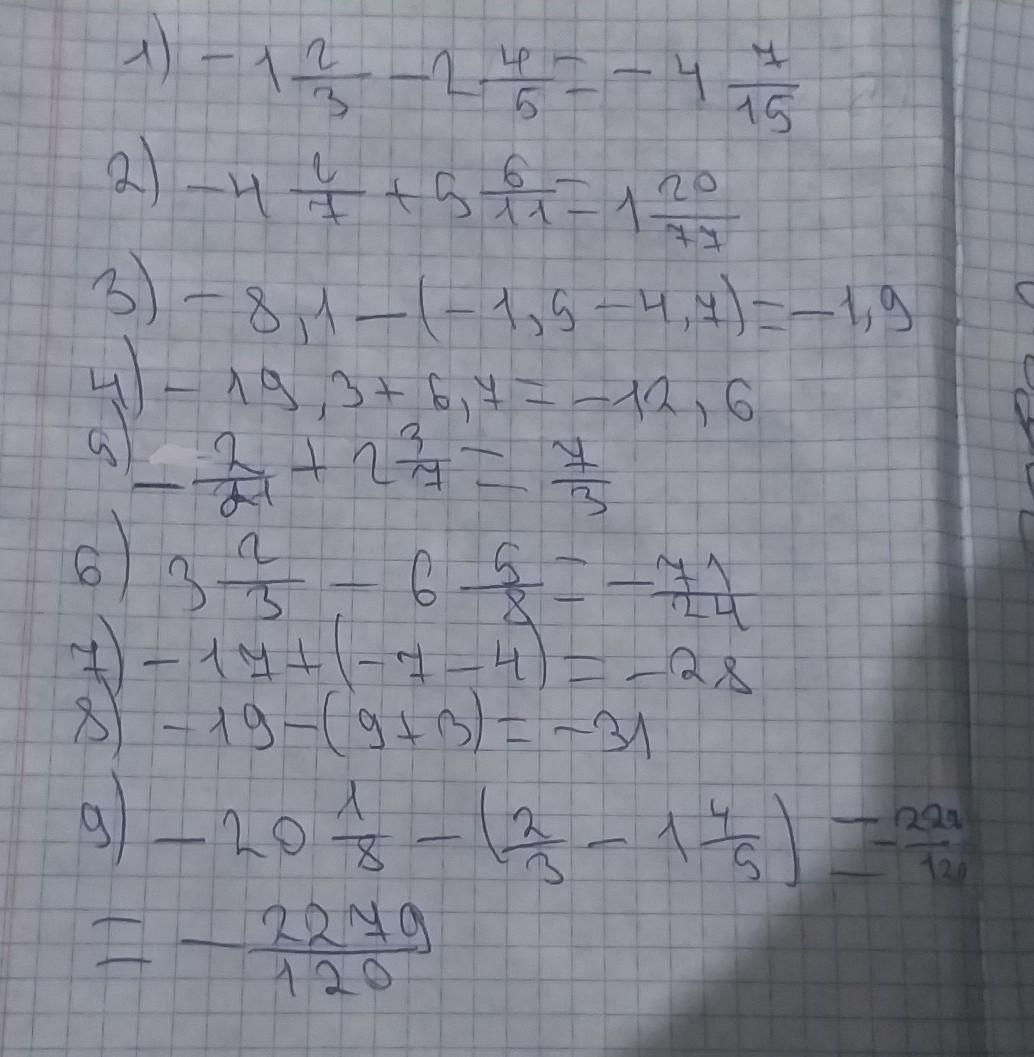 1) - 1 2/3 - 2 4/5 = - 4 7/15
2) - 4 2/7 + 5 6/11 = 1 20/77
3) - 8,1 - (- 1,5 - 4,7) = - 1,9
4) - 19,3 + 6,7 = - 12,6
5) - 2/21 + 2 3/7 = 7/3
6) 3 2/3 - 6 5/8 = - 71/24
7) - 17 + (- 7 - 4) = - 28
8) - 19 - (9 + 3) = - 31
9) - 20 1/8 - (2/3 - 1 4/5) =
= - 2279/120